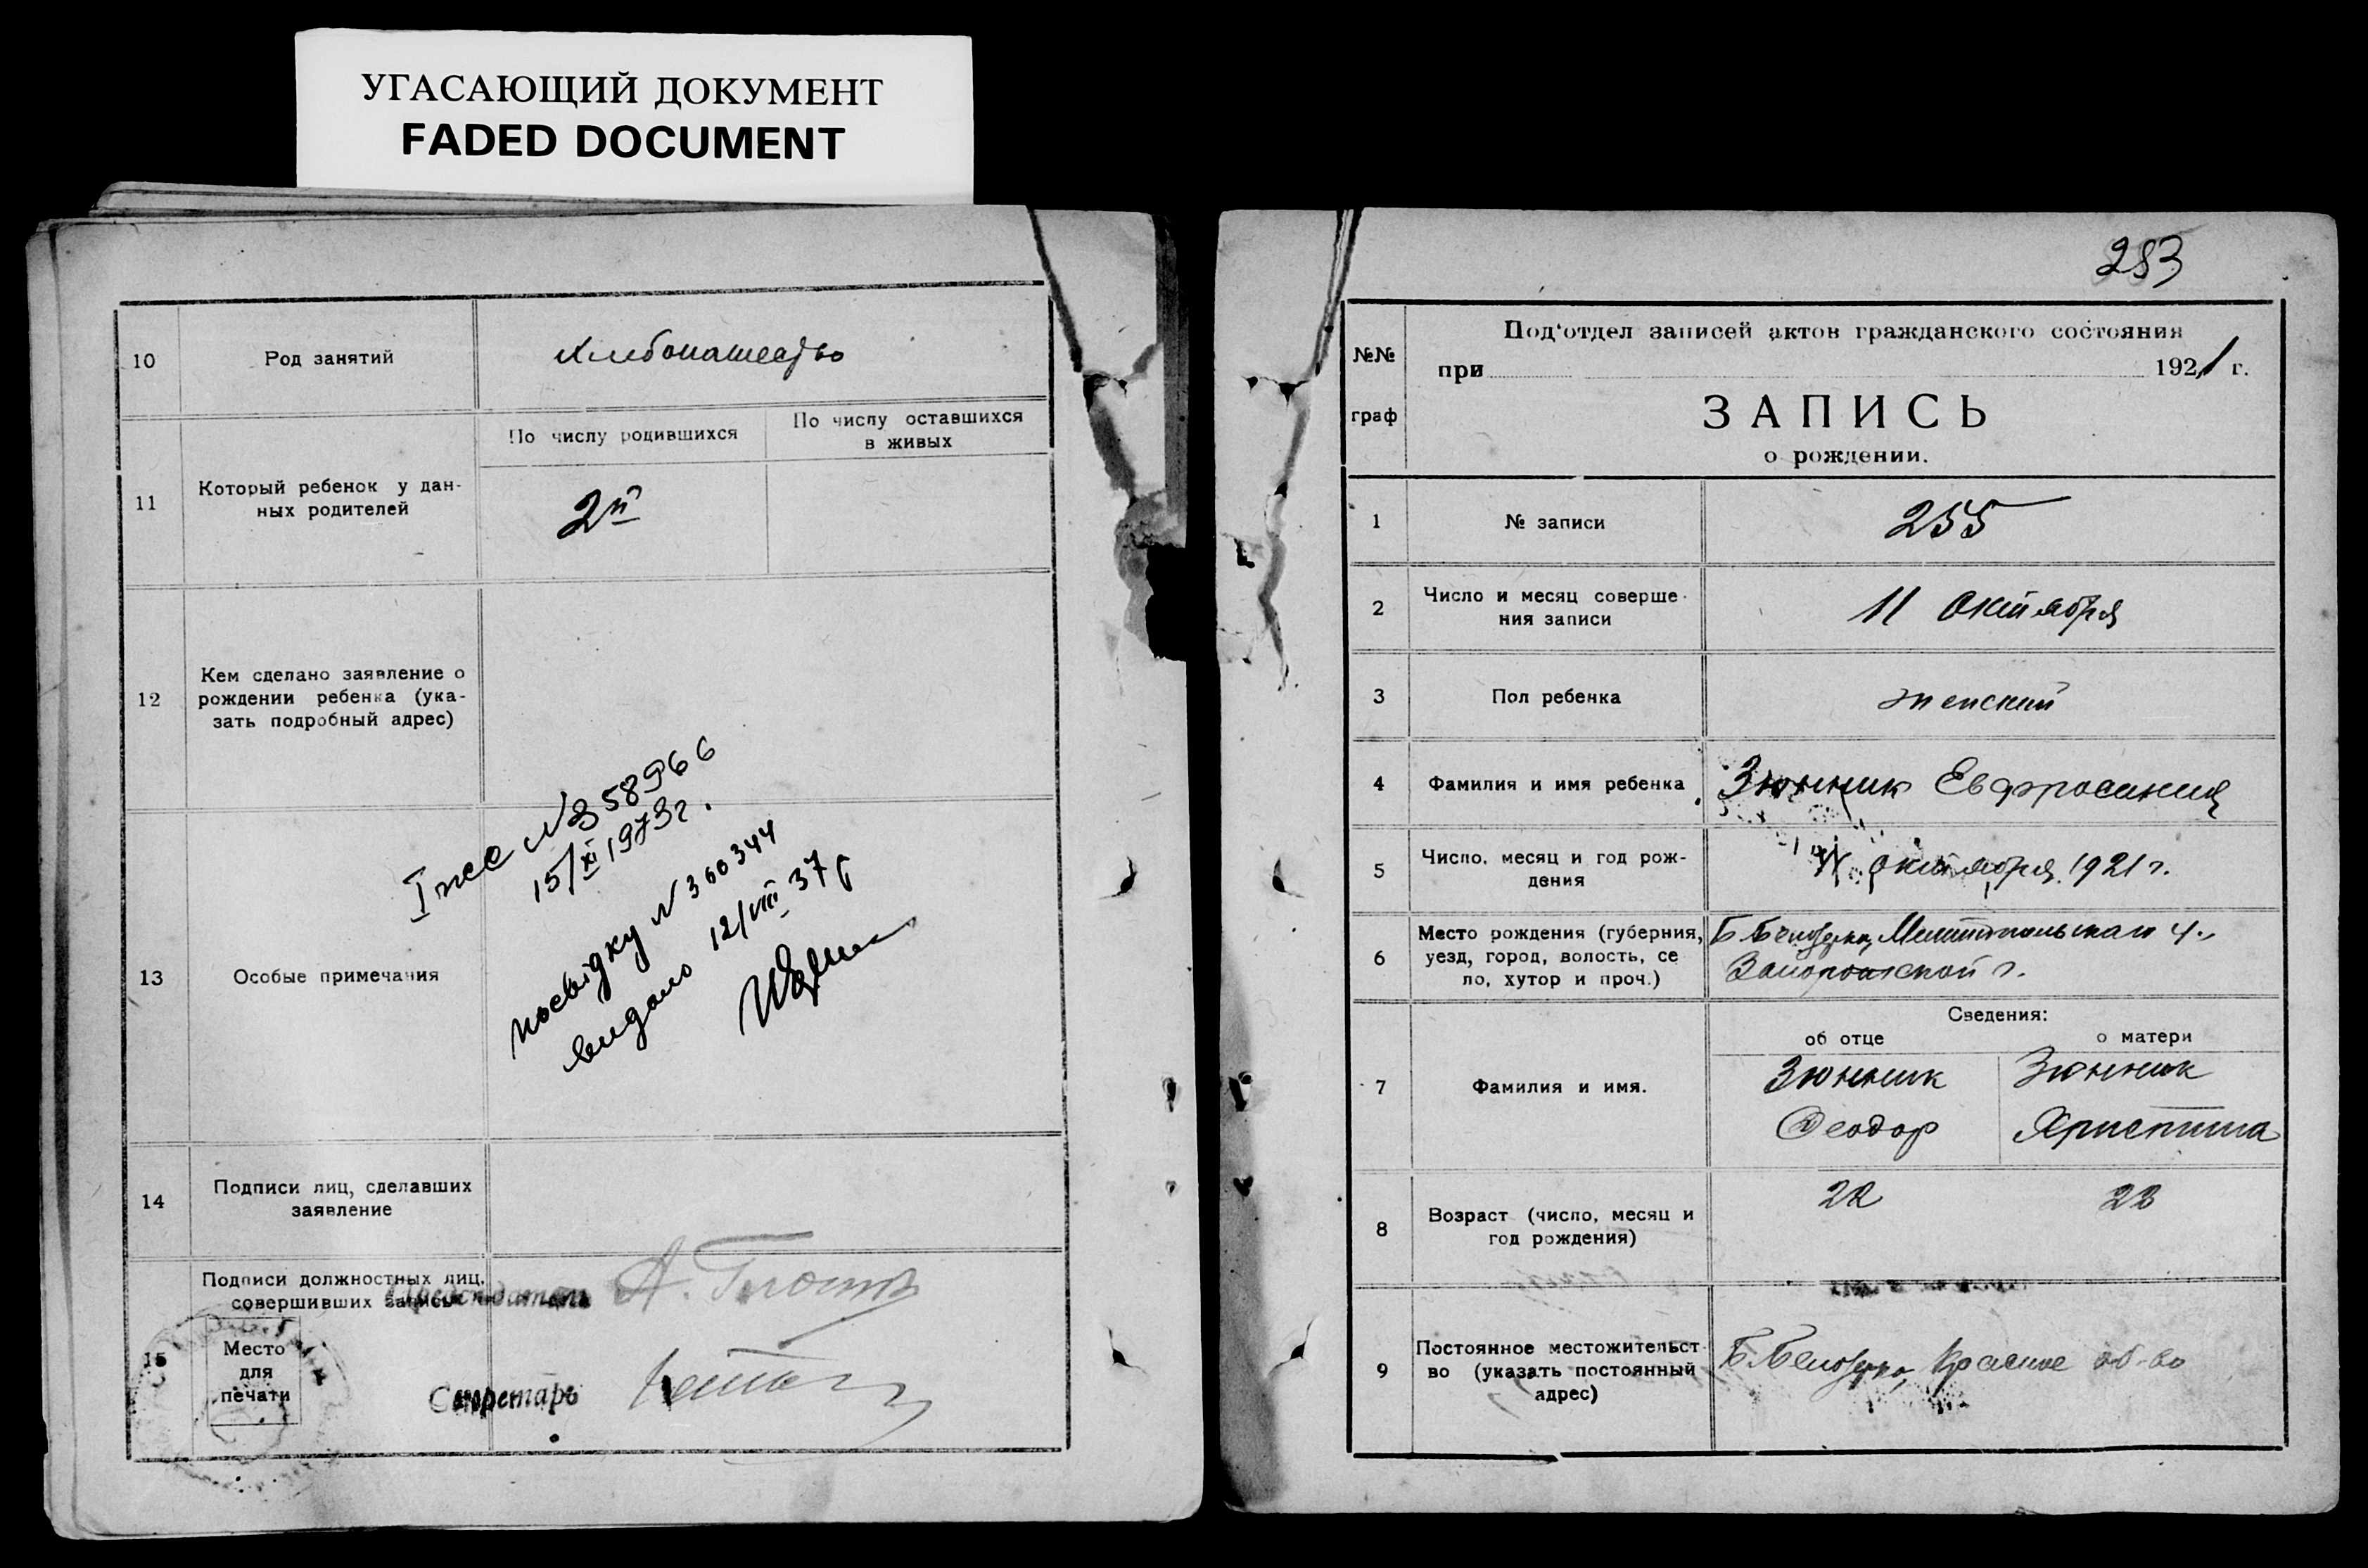 УГАСАЮЩИЙ ДОКУМЕНТ
FADED DOCUMENT
10
Род занятий
хлебопашество
11
Который ребенок у дан-
ных родителей
По числу родившихся
2й
По числу оставшихся
в живых
12
Кем сделано заявление о
рождении ребенка (ука-
зать подробный адрес)
13
Особые примечания
№ 358966
15/XI 1973г.
посвідку № 360344
видано 12/VIII 37 р
14
Подписи лиц, сделавших
заявление
15
Подписи должностных лиц,
совершивших запись
Председатель А.
Место
для
печати
Секретарь
283
№№
граф
Под'отдел записей актов гражданского состояния
при 1921 г.
ЗАПИСЬ
о рождении.
1
№ записи
255
2
Число и месяц соверше-
ния записи
11 октября
3
Пол ребенка
женский
4
Фамилия и имя ребенка
Зюнник Евфросиния
5
Число, месяц и год рож-
дения
октября 1921 г.
6
Место рождения (губерния,
уезд, город, волость, се
ло, хутор и проч.)
Б Белозерка, Мелитопольскаго у.,
Запорожской г.
7
Фамилия и имя.
Сведения:
об отце
Зюнник
Феодор
о матери
Зюнник
Христина
8
Возраст (число, месяц и
год рождения)
22
23
9
Постоянное местожительст
во (указать постоянный
адрес)
Б Белозерка, Красное об-во